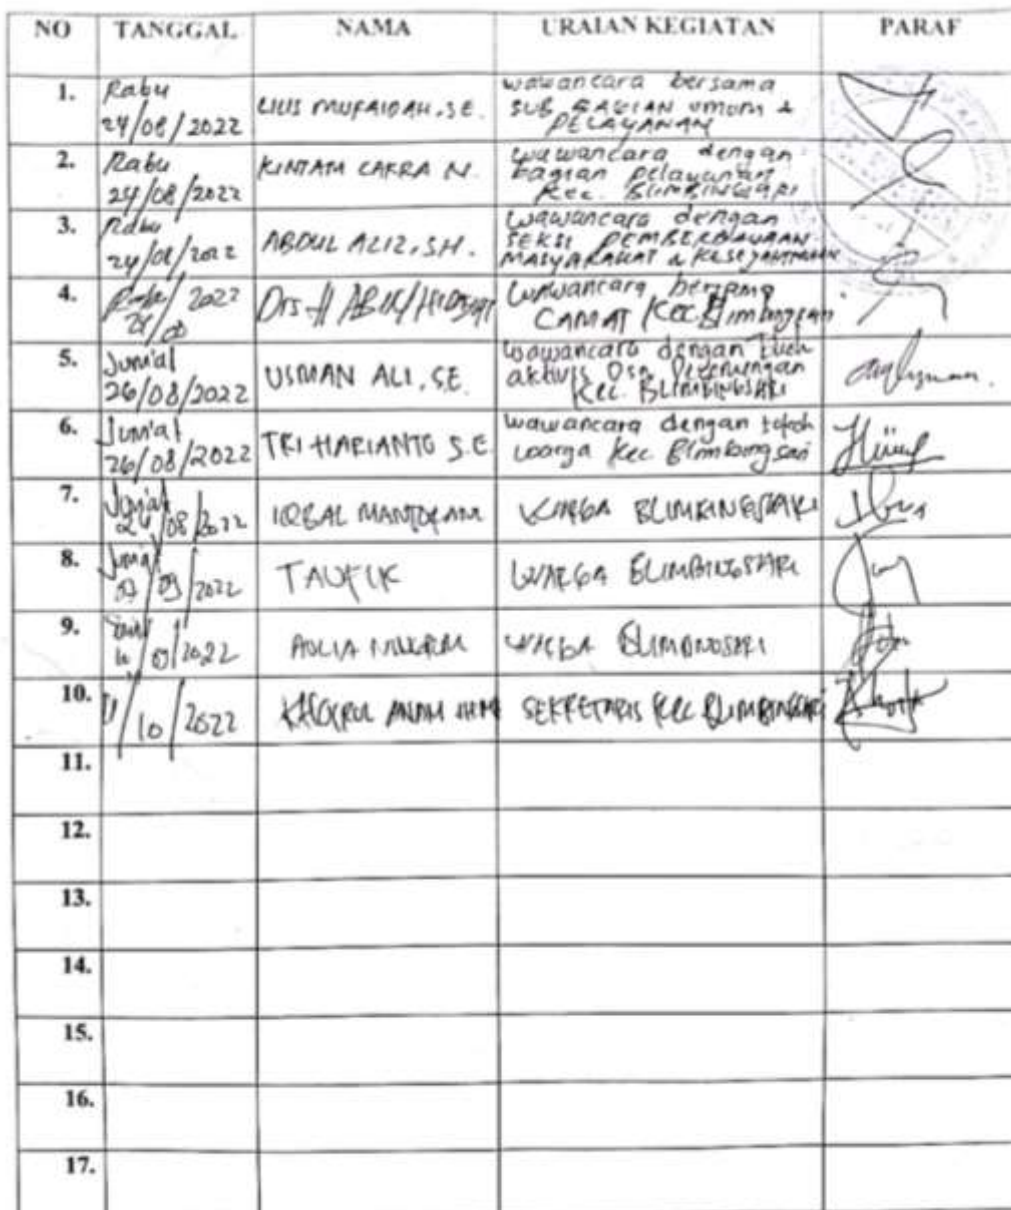 NO TANGGAL NAMA URAIAN KEGIATAN PARAF
1. Rabu 24/08/2022 LILIS MUFAIDAH, S.E. wawancara bersama
SUB BAGIAN umum &
PELAYANAN
2. Rabu 24/08/2022 KINTATA CAKRA N. wawancara dengan
bagian pelayanan
Kec. BLIMBINGSARI
3. Rabu 24/08/2022 ABDUL AZIZ, S.H. wawancara dengan
SEKSI PEMBERDAYAAN
MASYARAKAT &
4. 2022 Drs. H wawancara bersama
CAMAT Kec. Blimbingsari
5. Jum'at 26/08/2022 USMAN ALI, SE. wawancara dengan
aktivis Dsn.
Kec. BLIMBINGSARI
6. Jum'at 26/08/2022 TRI HARIANTO S.E wawancara dengan tokoh
warga Kec Blimbingsari
7. Jum'at 26/08/2022 IQBAL WARGA BLIMBINGSARI
8. 09/2022 TAUFIK WARGA BLIMBINGSARI
9. 09/2022 WARGA BLIMBINGSARI
10. /10/2022 ANAM SEKRETARIS KEC BLIMBINGSARI
11.
12.
13.
14.
15.
16.
17.